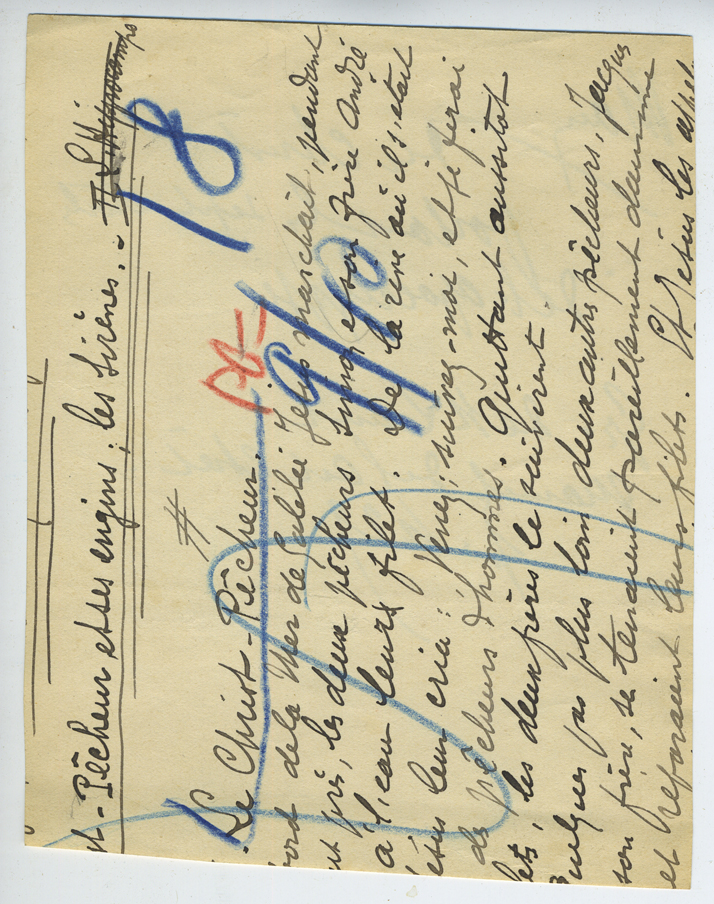 t-Pêcheur et ses engins; les Sirènes. - II L'Hippocamps
78
#
pt=
9/10
Le Christ-Pêcheur.
ord de la Mer de Galilée Jésus marchait, pendant
ut près, les deux pêcheurs Simon et son frère André
à l'eau leurs filet. De la rive où ils était
ésus leur cria: Venez; suivez-moi, et je ferai
de pêcheurs d'hommes. Quittant aussitôt
lets, les deux frères le suivirent.
uelques pas plus loin deux autres pêcheurs, Jacques
son frère, se tenaient pareillement dans une
et réparaient leurs filets. Et Jésus les appel